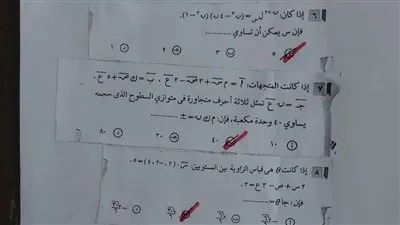 ٦ إذا كان: ن+٢ل س = (ن٢-٤ن)(ن٢-١).
فإن س يمكن أن تساوي ............
أ ٥ ب ٣ ج ٢ د ١
٧ إذا كانت المتجهات: أ = م س + ٣ ص - ٢ ع ، ب = ك ص + ٥ ع ،
جـ = ن ع تمثل ثلاثة أحرف متجاورة فى متوازي السطوح الذى حجمه
يساوي ٤٠ وحدة مكعبة، فإن: م ك ن = ± ............
أ ١٠ ب ٤٠ ج ٢٠ د ٨٠
٨ إذا كانت θ هى قياس الزاوية بين المستويين: س . (٢، -٢، ٤) = ٥،
٢ س + ص - ٢ ع = ٢،
فإن: جا θ = ............